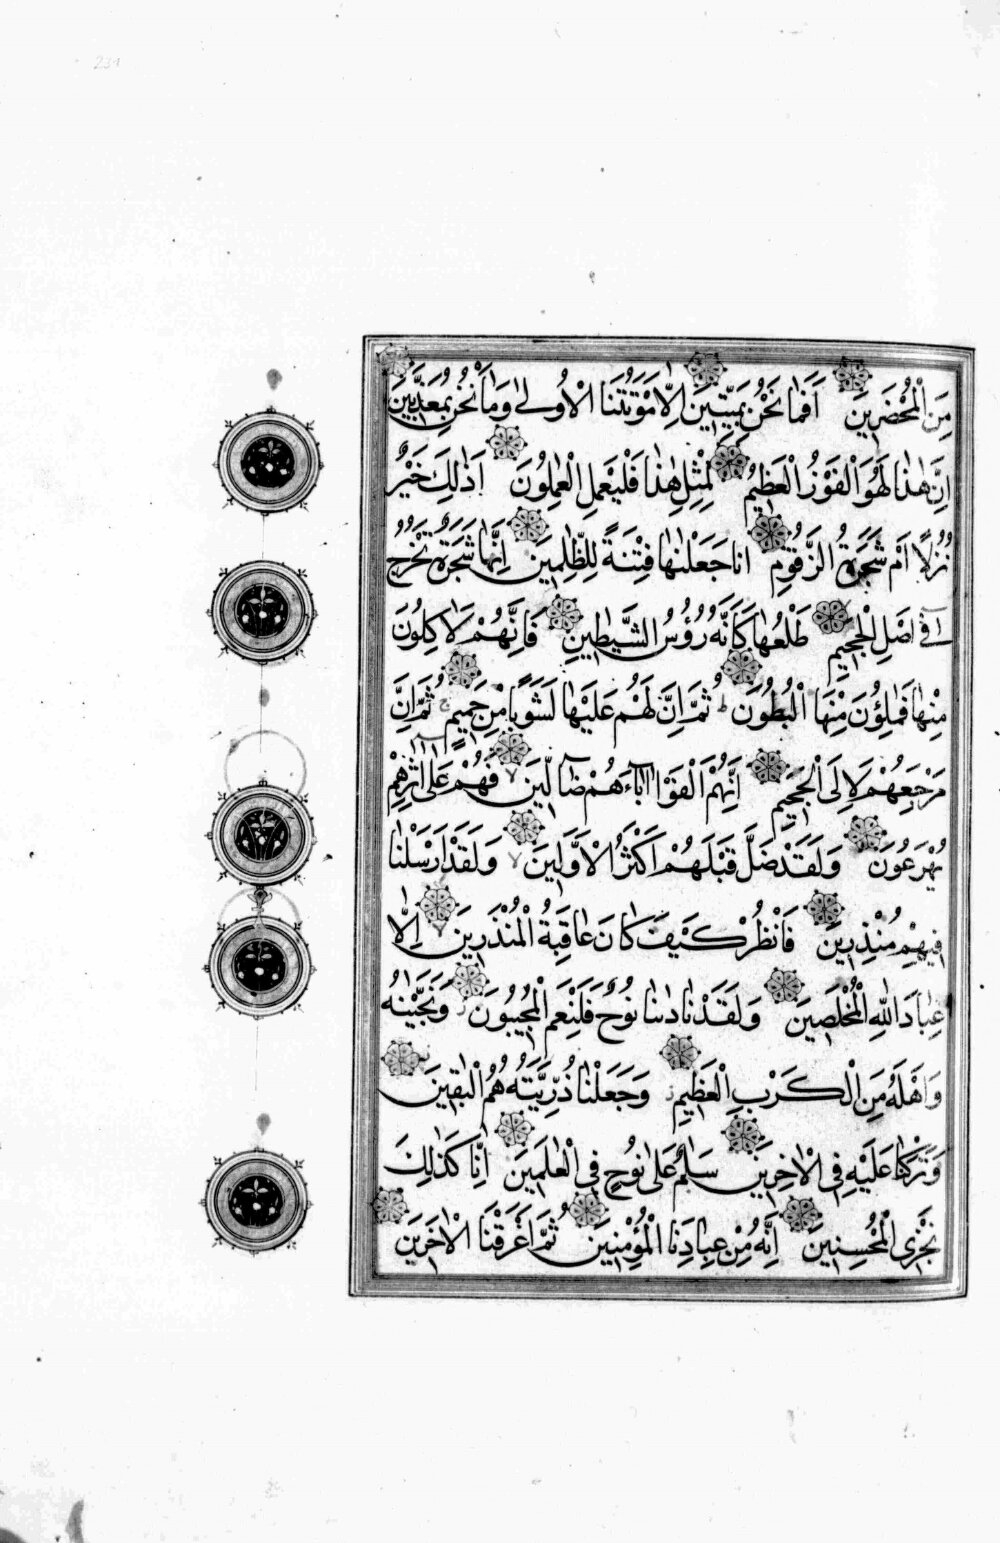 مِنَ الْمُحْضَرِينَ اَفَمَا نَحْنُ بِمَيِّتِينَ اِلَّا مَوْتَتَنَا الْاُولٰى وَمَا نَحْنُ بِمُعَذَّبِينَ
اِنَّ هٰذَا لَهُوَ الْفَوْزُ الْعَظِيمُ لِمِثْلِ هٰذَا فَلْيَعْمَلِ الْعٰمِلُونَ اَذٰلِكَ خَيْرٌ
نُزُلًا اَمْ شَجَرَةُ الزَّقُّومِ اِنَّا جَعَلْنٰهَا فِتْنَةً لِلظّٰلِمِينَ اِنَّهَا شَجَرَةٌ تَخْرُجُ
فِى اَصْلِ الْجَحِيمِ طَلْعُهَا كَاَنَّهُ رُؤُسُ الشَّيٰطِينِ فَاِنَّهُمْ لَاٰكِلُونَ
مِنْهَا فَمَالِؤُنَ مِنْهَا الْبُطُونَ ط ثُمَّ اِنَّ لَهُمْ عَلَيْهَا لَشَوْبًا مِنْ حَمِيمٍ ج ثُمَّ اِنَّ
مَرْجِعَهُمْ لَاِلَى الْجَحِيمِ اِنَّهُمْ اَلْفَوْا اٰبَاءَهُمْ ضَالِّينَ لا فَهُمْ عَلٰى اٰثَارِهِمْ
يُهْرَعُونَ وَلَقَدْ ضَلَّ قَبْلَهُمْ اَكْثَرُ الْاَوَّلِينَ لا وَلَقَدْ اَرْسَلْنَا
فِيهِمْ مُنْذِرِينَ فَانْظُرْ كَيْفَ كَانَ عَاقِبَةُ الْمُنْذَرِينَ لا اِلَّا
عِبَادَ اللّٰهِ الْمُخْلَصِينَ وَلَقَدْ نَادٰىنَا نُوحٌ فَلَنِعْمَ الْمُجِيبُونَ ز وَنَجَّيْنٰهُ
وَاَهْلَهُ مِنَ الْكَرْبِ الْعَظِيمِ ز وَجَعَلْنَا ذُرِّيَّتَهُ هُمُ الْبٰقِينَ
وَتَرَكْنَا عَلَيْهِ فِى الْاٰخِرِينَ سَلٰمٌ عَلٰى نُوحٍ فِى الْعٰلَمِينَ اِنَّا كَذٰلِكَ
نَجْزِى الْمُحْسِنِينَ اِنَّهُ مِنْ عِبَادِنَا الْمُؤْمِنِينَ ثُمَّ اَغْرَقْنَا الْاٰخَرِينَ